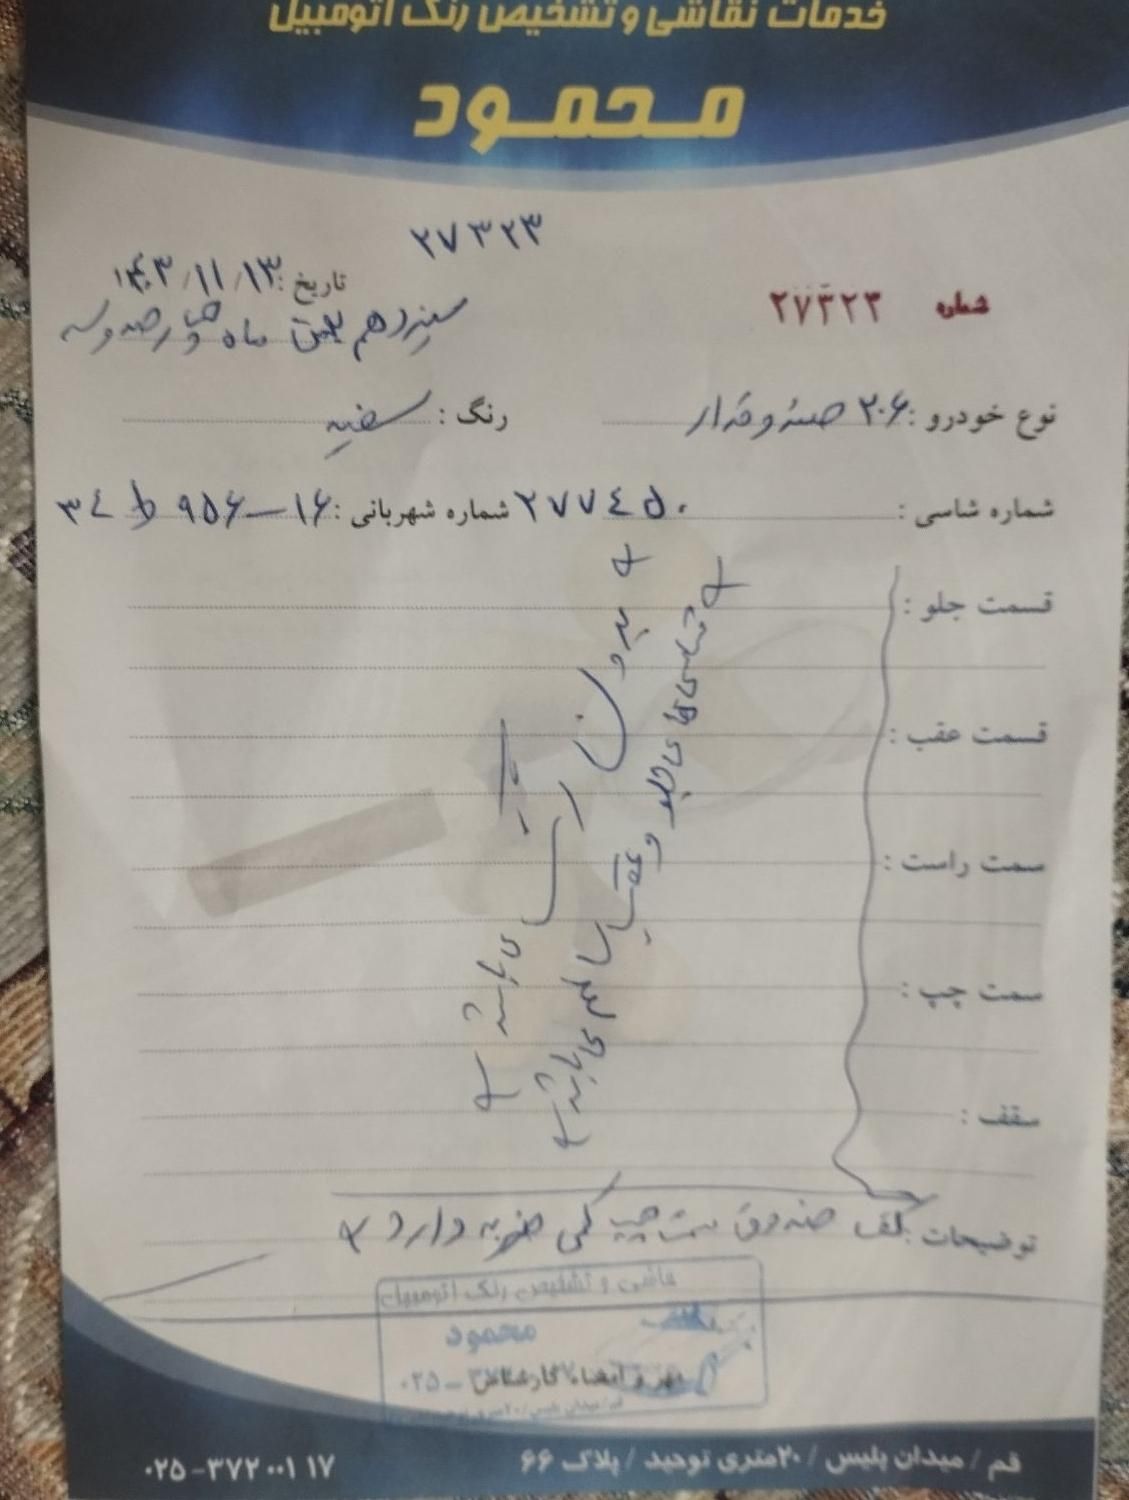 خدمات نقاشی و تشخیص رنگ اتومبیل
محمود
۲۷۳۲۳
شماره ۲۷۳۲۳
تاریخ: ۱۴۰۳/۱۱/۱۳
سیزدهم بهمن ماه چهارصد و سه
نوع خودرو: ۲۰۶ صندوقدار
رنگ: سفید
شماره شاسی: ۲۷۷۴۵۰
شماره شهربانی: ۳۴ ط ۹۵۶-۱۶
قسمت جلو:
قسمت عقب:
سمت راست:
سمت چپ:
سقف:
+ شاسی های جلو و عقب سالم می باشد +
+ بدون رنگ می باشد +
توضیحات: کف صندوق سمت چپ کمی ضربه دارد
نقاشی و تشخیص رنگ اتومبیل
محمود
مهر و امضاء کارشناس
۰۲۵-
قم / میدان پلیس / ۲۰ متری توحید / پلاک ۶۶
۰۲۵-۳۷۲۰۰۱۱۷